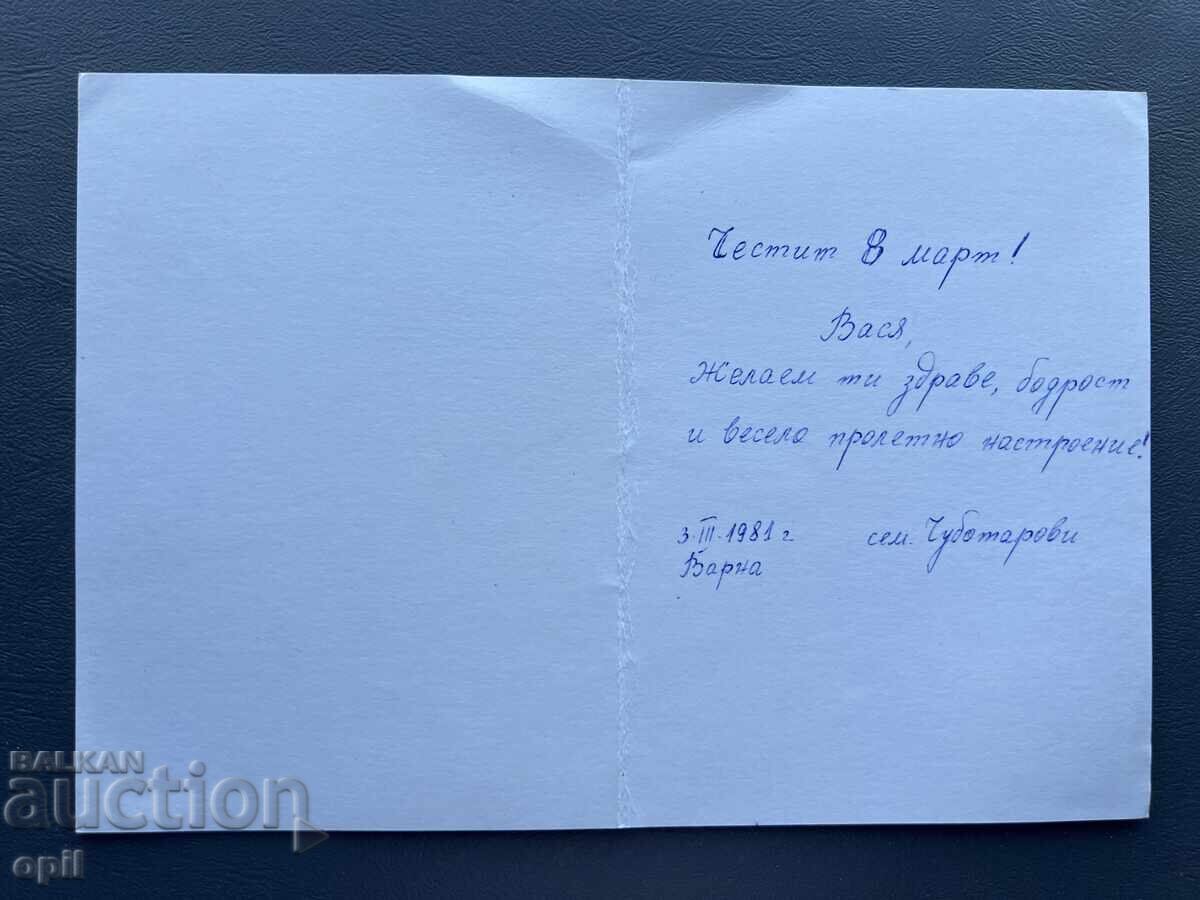 Честит 8 март!
Вася,
Желаем ти здраве, бодрост
и весело пролетно настроение!
3.III.1981 г сем. Чуботарови
Варна
BALKAN
auction
opil